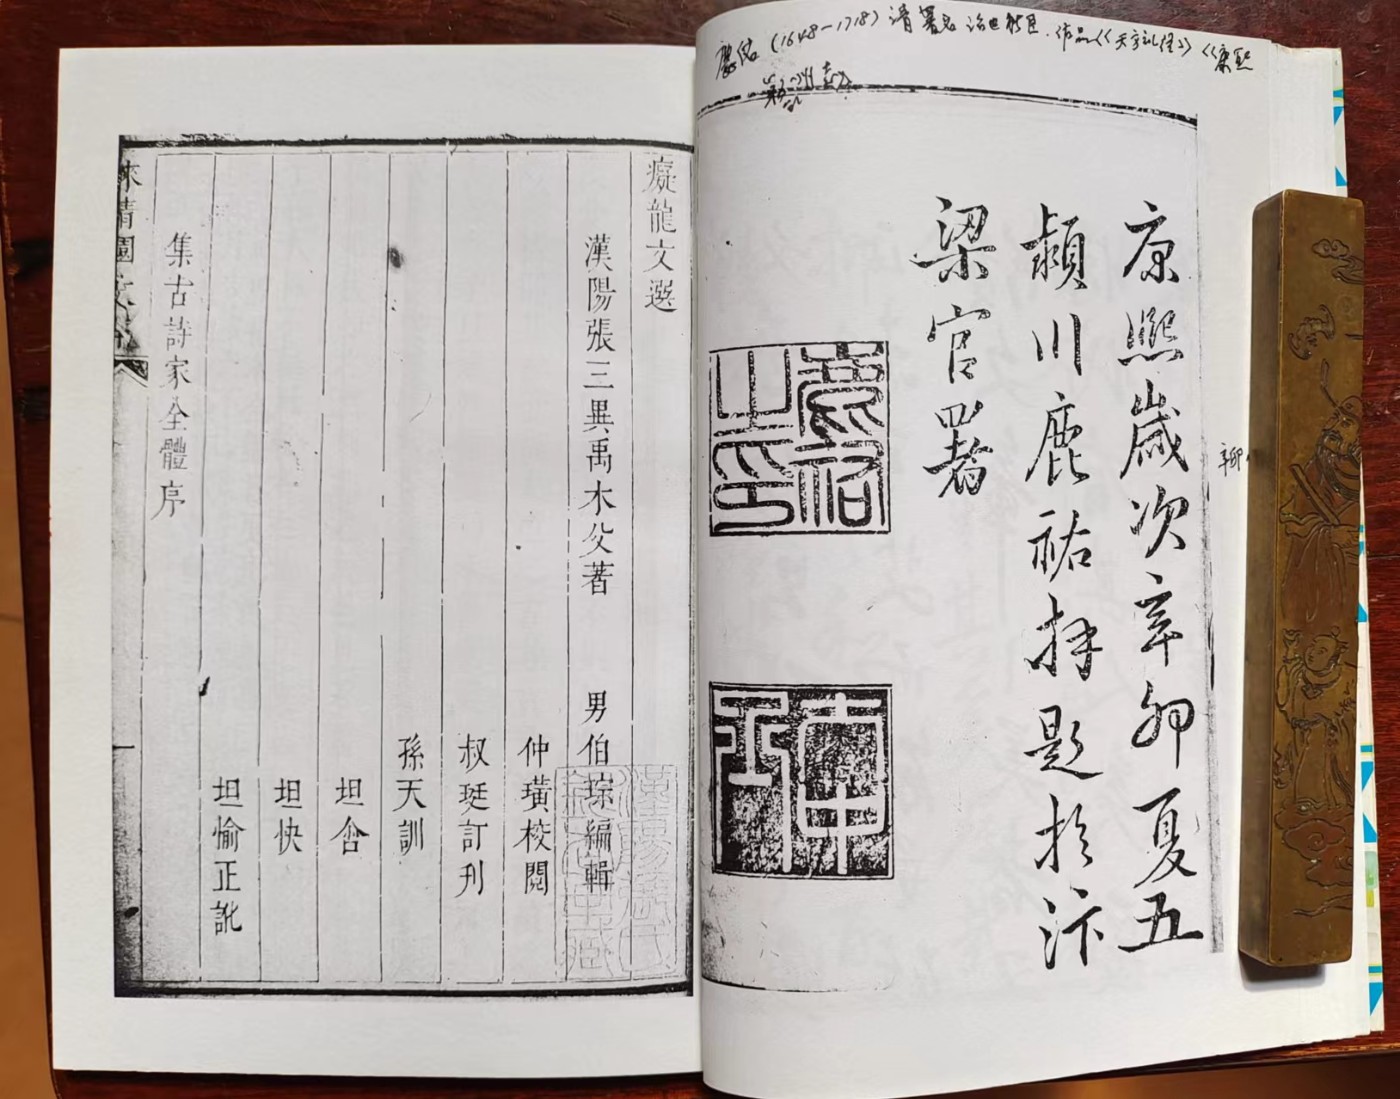 鹿祐（1648—1718）清著名治世能臣．作品《天方礼经》《康熙
康熙歲次辛卯夏五
潁川鹿祐拜題於汴
梁官署
鹿祐之印
辛卯
癡龍文選
漢陽張三異禹木父著 男伯琮編輯
仲璜校閱
叔珽訂刊
孫天訓
坦舍
坦快
坦愉正訛
集古詩家全體序
來青園文
一